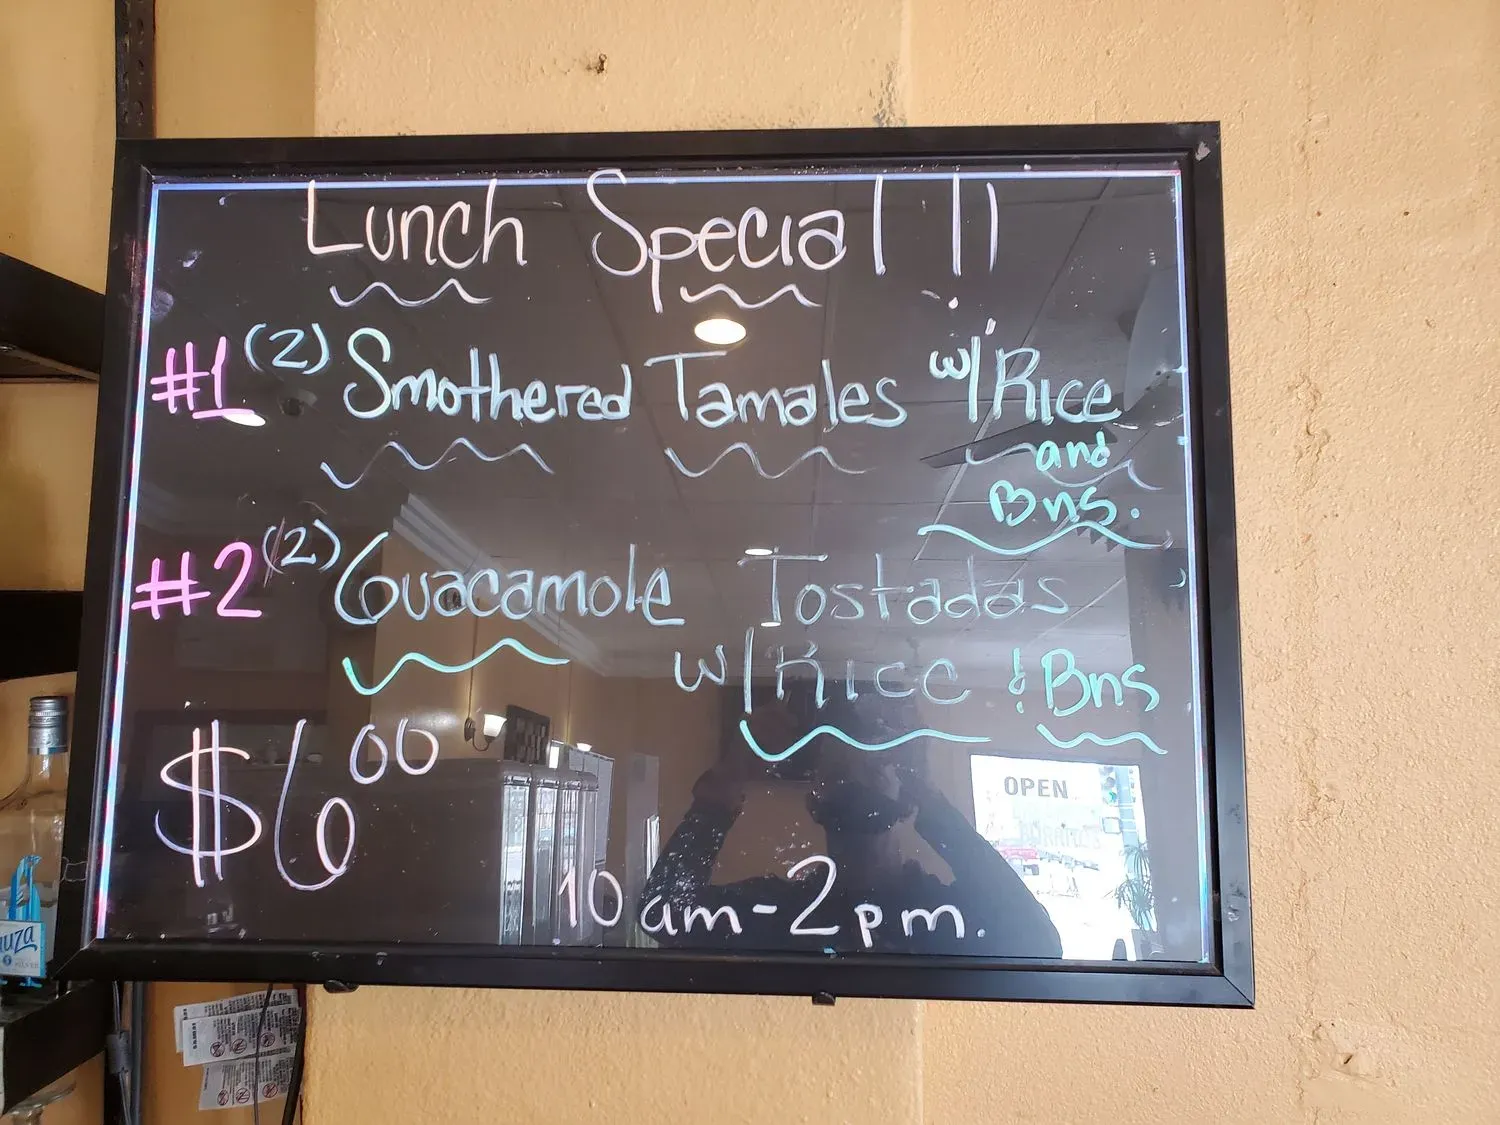 Lunch Special !!
#1 (2) Smothered Tamales w/ Rice
and
Bns.
#2 (2) Guacamole Tostadas
w/ Rice & Bns
$6 00
10 am - 2 pm.
OPEN
SILVER